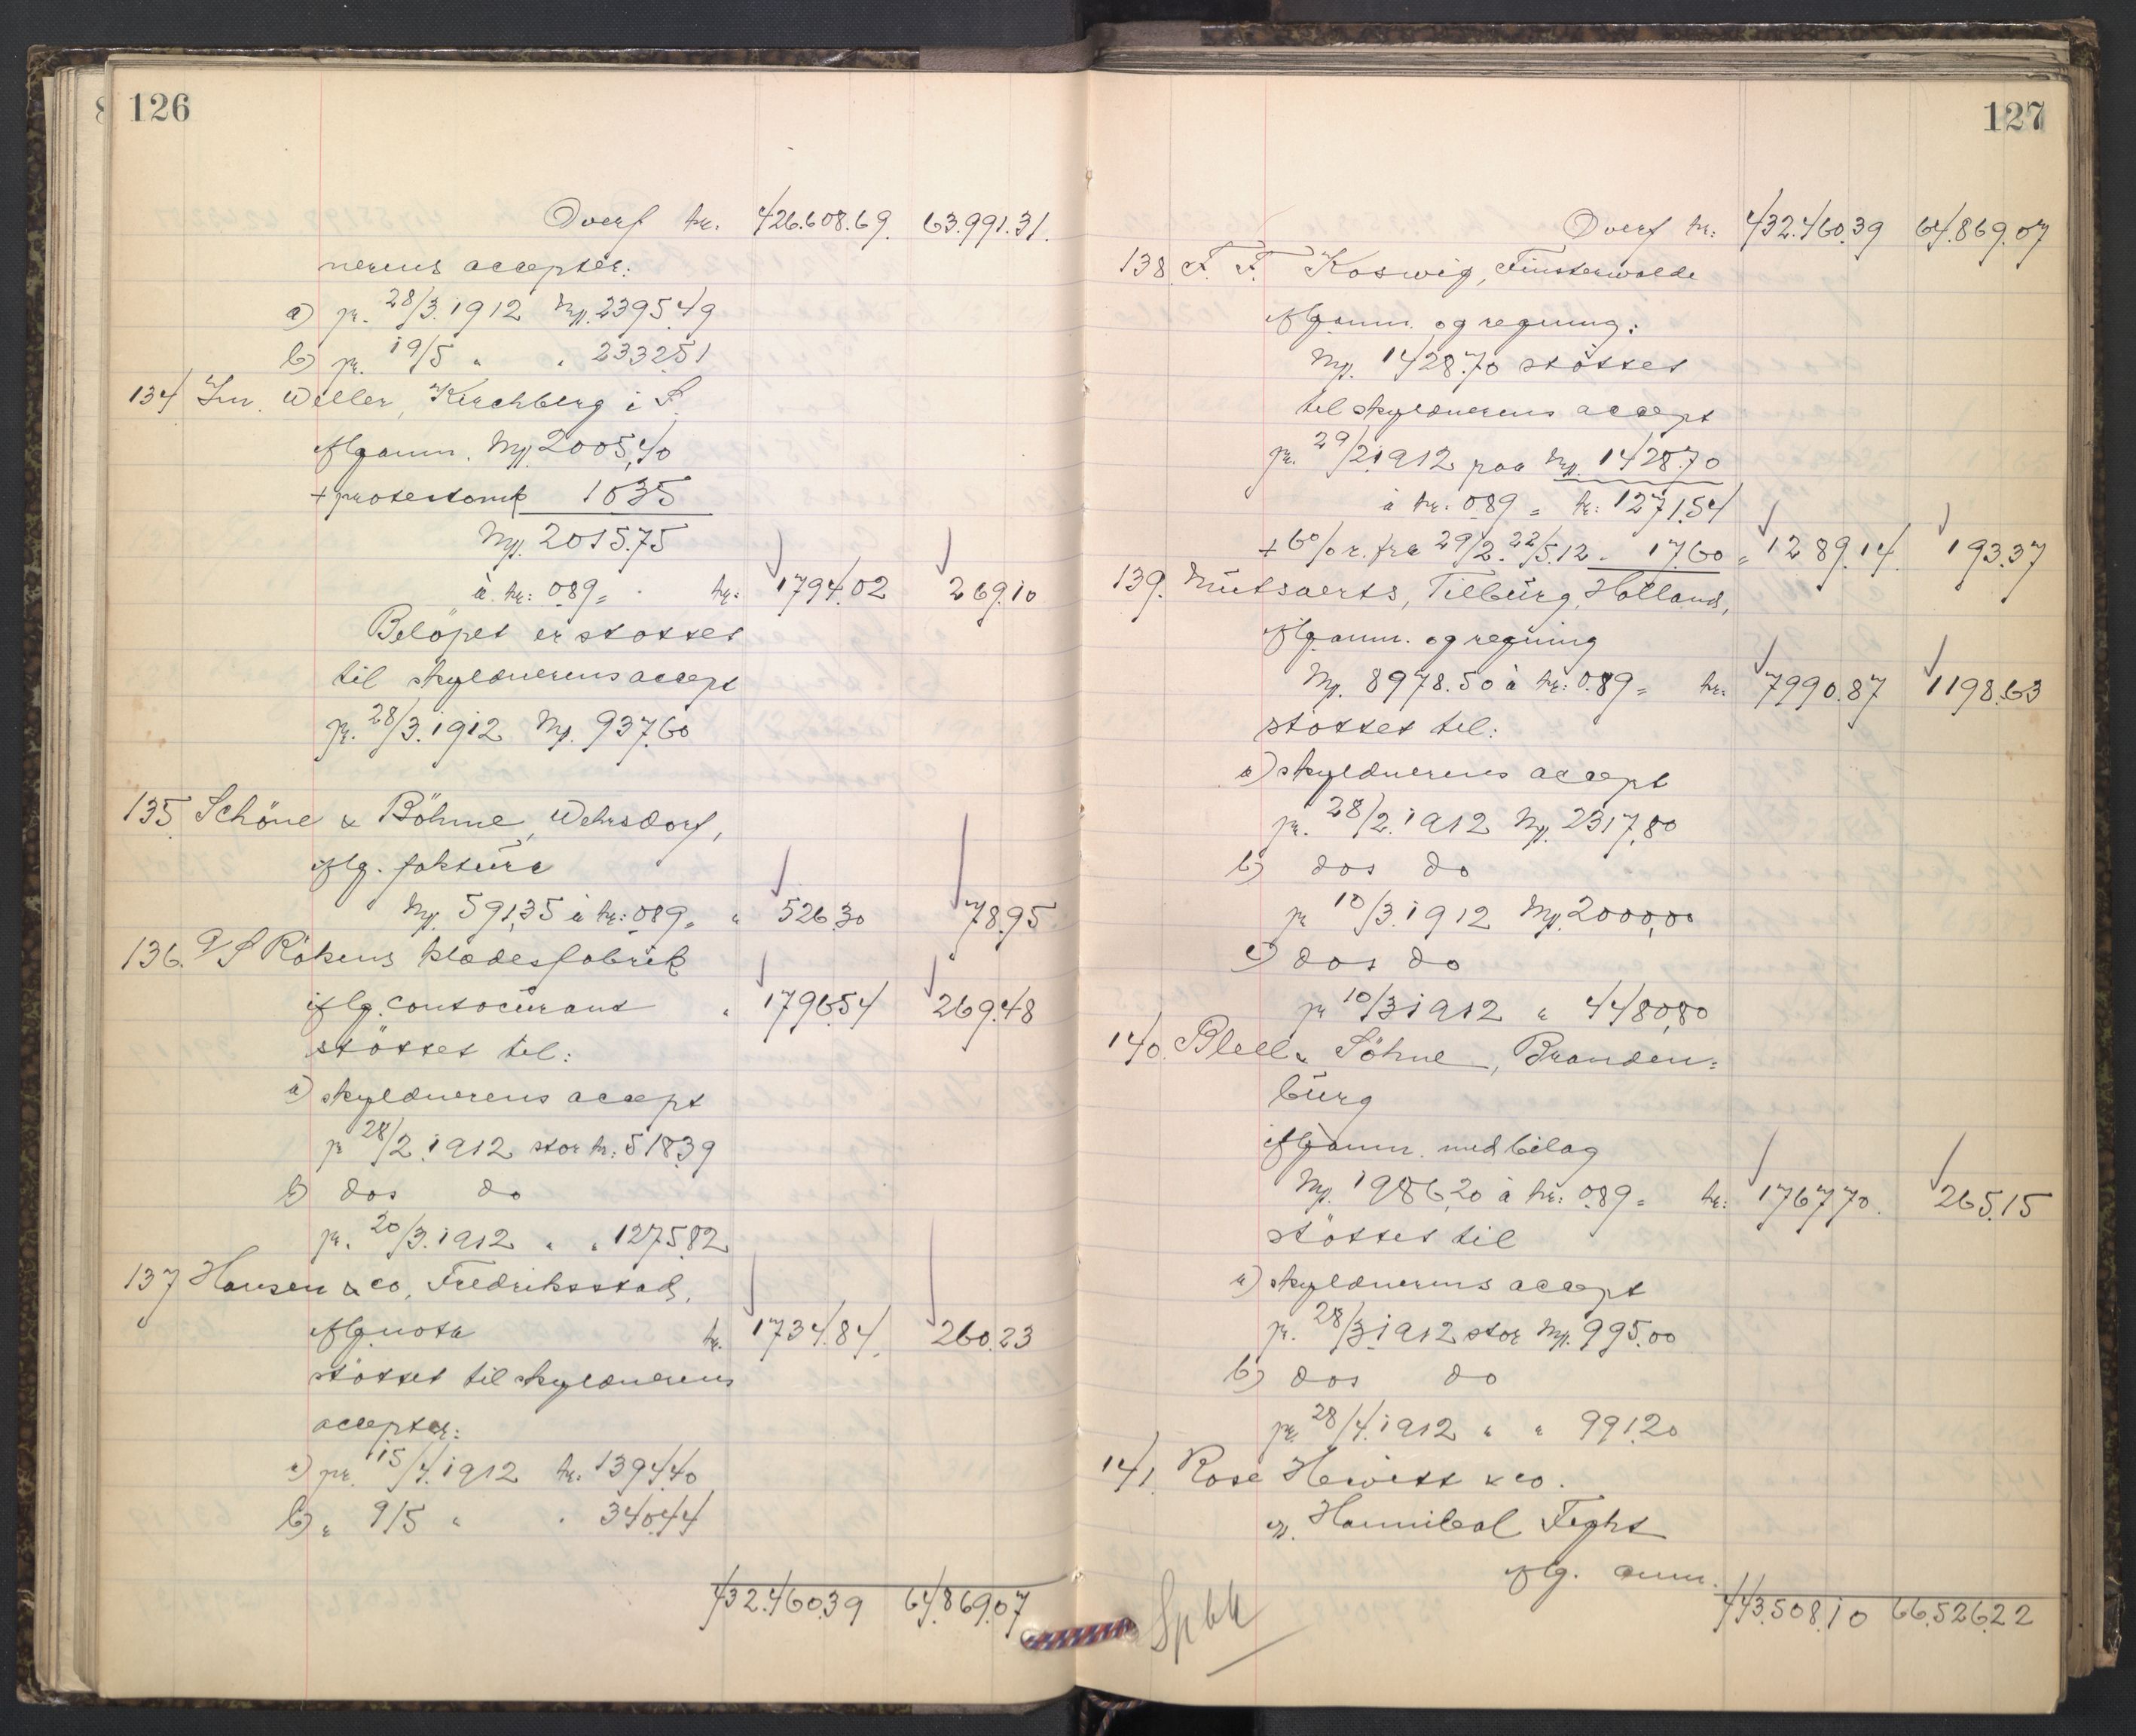 126
Overf kr. 426.608.69. 63.991.31.
nerens accepter:
a) pr. 28/3.1912 Mp. 2395.49
b) pr. 19/5 " " 2332.51
134 Im. Weller, Kirchberg i S.
iflg anm. Mp. 2005,40
+ protestomk 10.35
Mp. 2015.75
à kr: 0.89 = kr: 1794.02 269.10
Belöpet er støttet
til skyldnerens accept
pr. 28/3.1912 Mp. 937.60
135. Schöne & Böhme, Wehrsdorf,
iflg. faktura
Mp. 591,35 à kr: 0.89 = " 526.30 78.95
136. A/S Rökens klædesfabrik
iflg. contocurant " 1796.54 269.48
støttet til:
a) skyldnerens accept
pr 28/2.1912 stor kr: 518.39
b) dos do
pr. 20/3.1912 " " 1275.82
137 Hansen & co, Fredriksstad,
iflg nota kr. 1734.84. 260.23
støttet til skyldnerens
accepter:
a) pr. 15/4.1912 kr. 1394.40
b) " 9/5 " " 340.44
432.460.39 64.869.07
127
Overf kr: 432.460.39 64.869.07
138. F. F. Koswig, Finsterwalde
iflg anm. og regning:
Mp. 1428.70 støttet
til skyldnerens accept
pr. 29/2.1912 paa Mp. 1428.70
à kr: 0.89 = kr: 1271.54
+ 6% r. fra 29/2-22/5.12 - 17.60 = 1289.14. 193.37
139. Mutsaerts, Tilburg, Holland,
iflg anm. og regning
Mp. 8978.50 à kr: 0.89 = kr. 7990.87 1198.63
støttet til:
a) skyldnerens accept
pr. 28/2.1912 Mp. 2317,80
b) dos do
pr 10/3.1912 Mp. 2000,00
c) dos do
pr 10/3 1912 " 4480,80
140. Blell & Söhne, Branden=
burg
iflg anm. med bilag
Mp. 1986,20 à kr: 0.89 = kr: 1767.70. 265.15
støttet til
a) skyldnerens accept
pr. 28/3 1912 stor Mp. 995.00
b) dos do
pr. 28/4.1912 " " 991.20
141. Rose Hewitt & co.
v. Hannibal Fegth
iflg. anm.
443.508.10 66.526.22